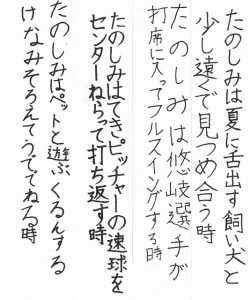 たのしみは夏に舌出す飼い犬と
少し遠くで見つめ合う時
たのしみは悠岐選手が
打席に入ってフルスイングする時
たのしみはてきピッチャーの速球を
センターねらって打ち返す時
たのしみはペットと遊ぶくるんする
けなみそろえてうででねる時